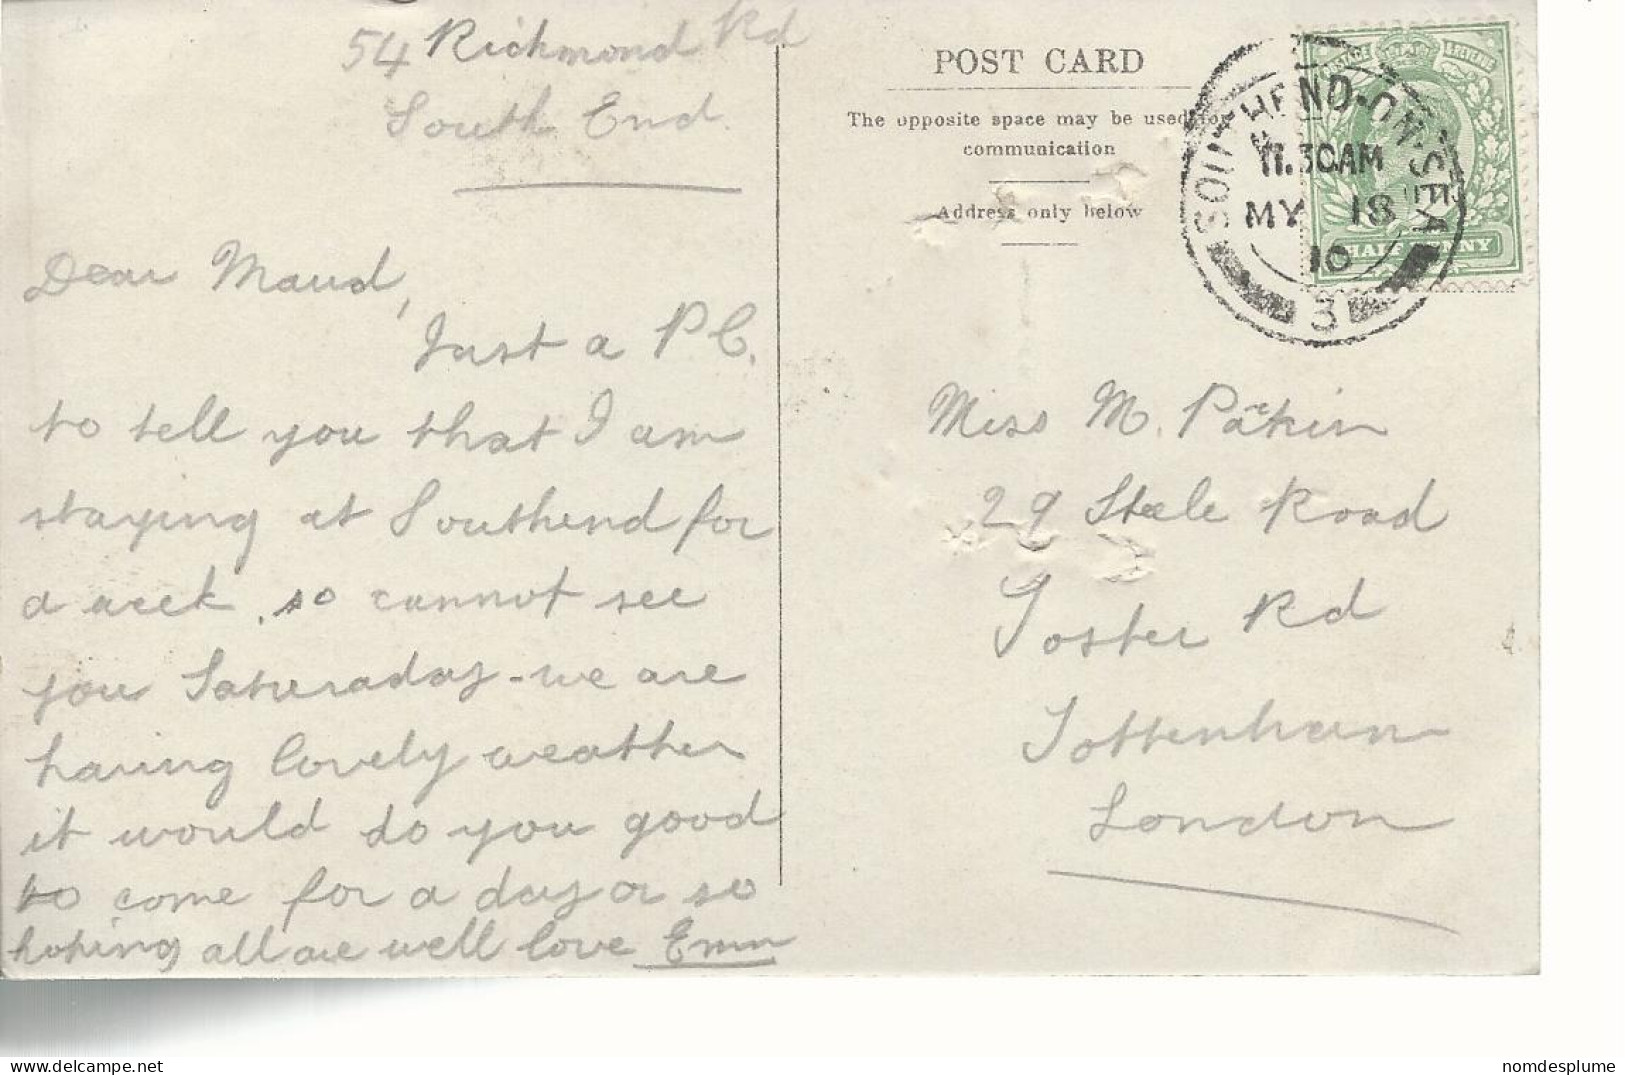 54 Richmond Rd
South End.
Dear Maud,
Just a P C.
to tell you that I am
staying at Southend for
a week, so cannot see
you Saturaday - we are
having lovely weather
it would do you good
to come for a day or so
hoping all are well love Emm
POST CARD
The opposite space may be used for
communication
Address only below
SOUTHEND-ON-SEA
11.30AM
MY 18
10
3
POSTAGE & REVENUE
HALF PENNY
Miss M.
29 Steele Road
Foster Rd
Tottenham
London
nomdesplume